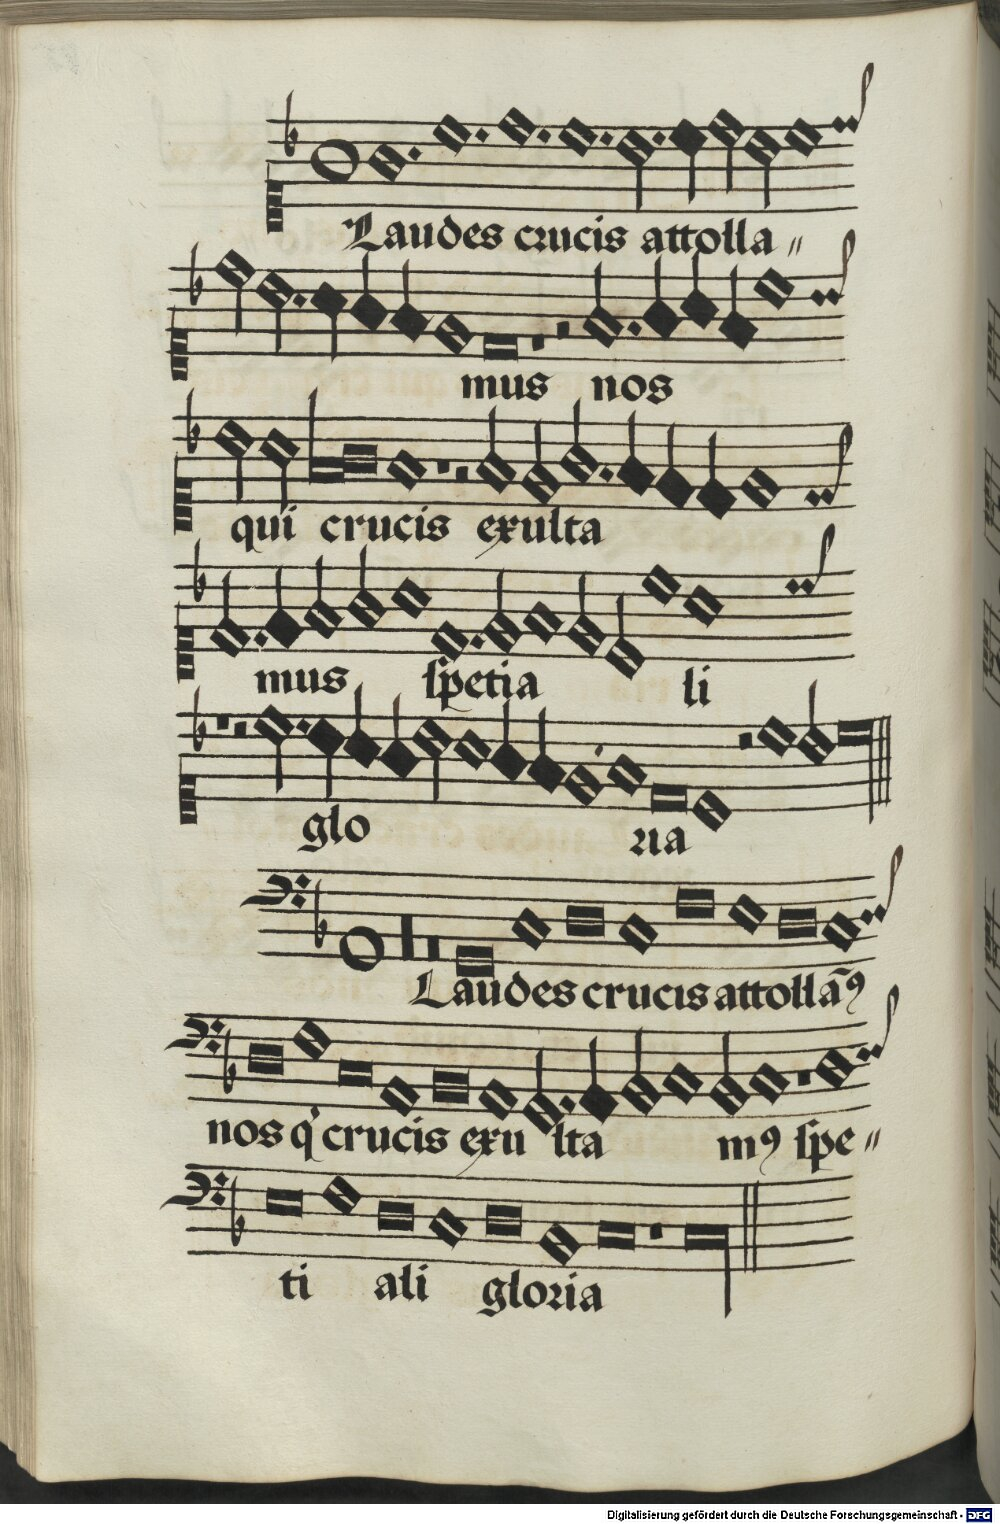 Laudes crucis attolla〃
mus nos
qui crucis exulta
mus spetia li
glo ria
Laudes crucis attollãꝰ
nos q̇ crucis exu lta mꝰ spe〃
ti ali gloria
Digitalisierung gefördert durch die Deutsche Forschungsgemeinschaft - DFG